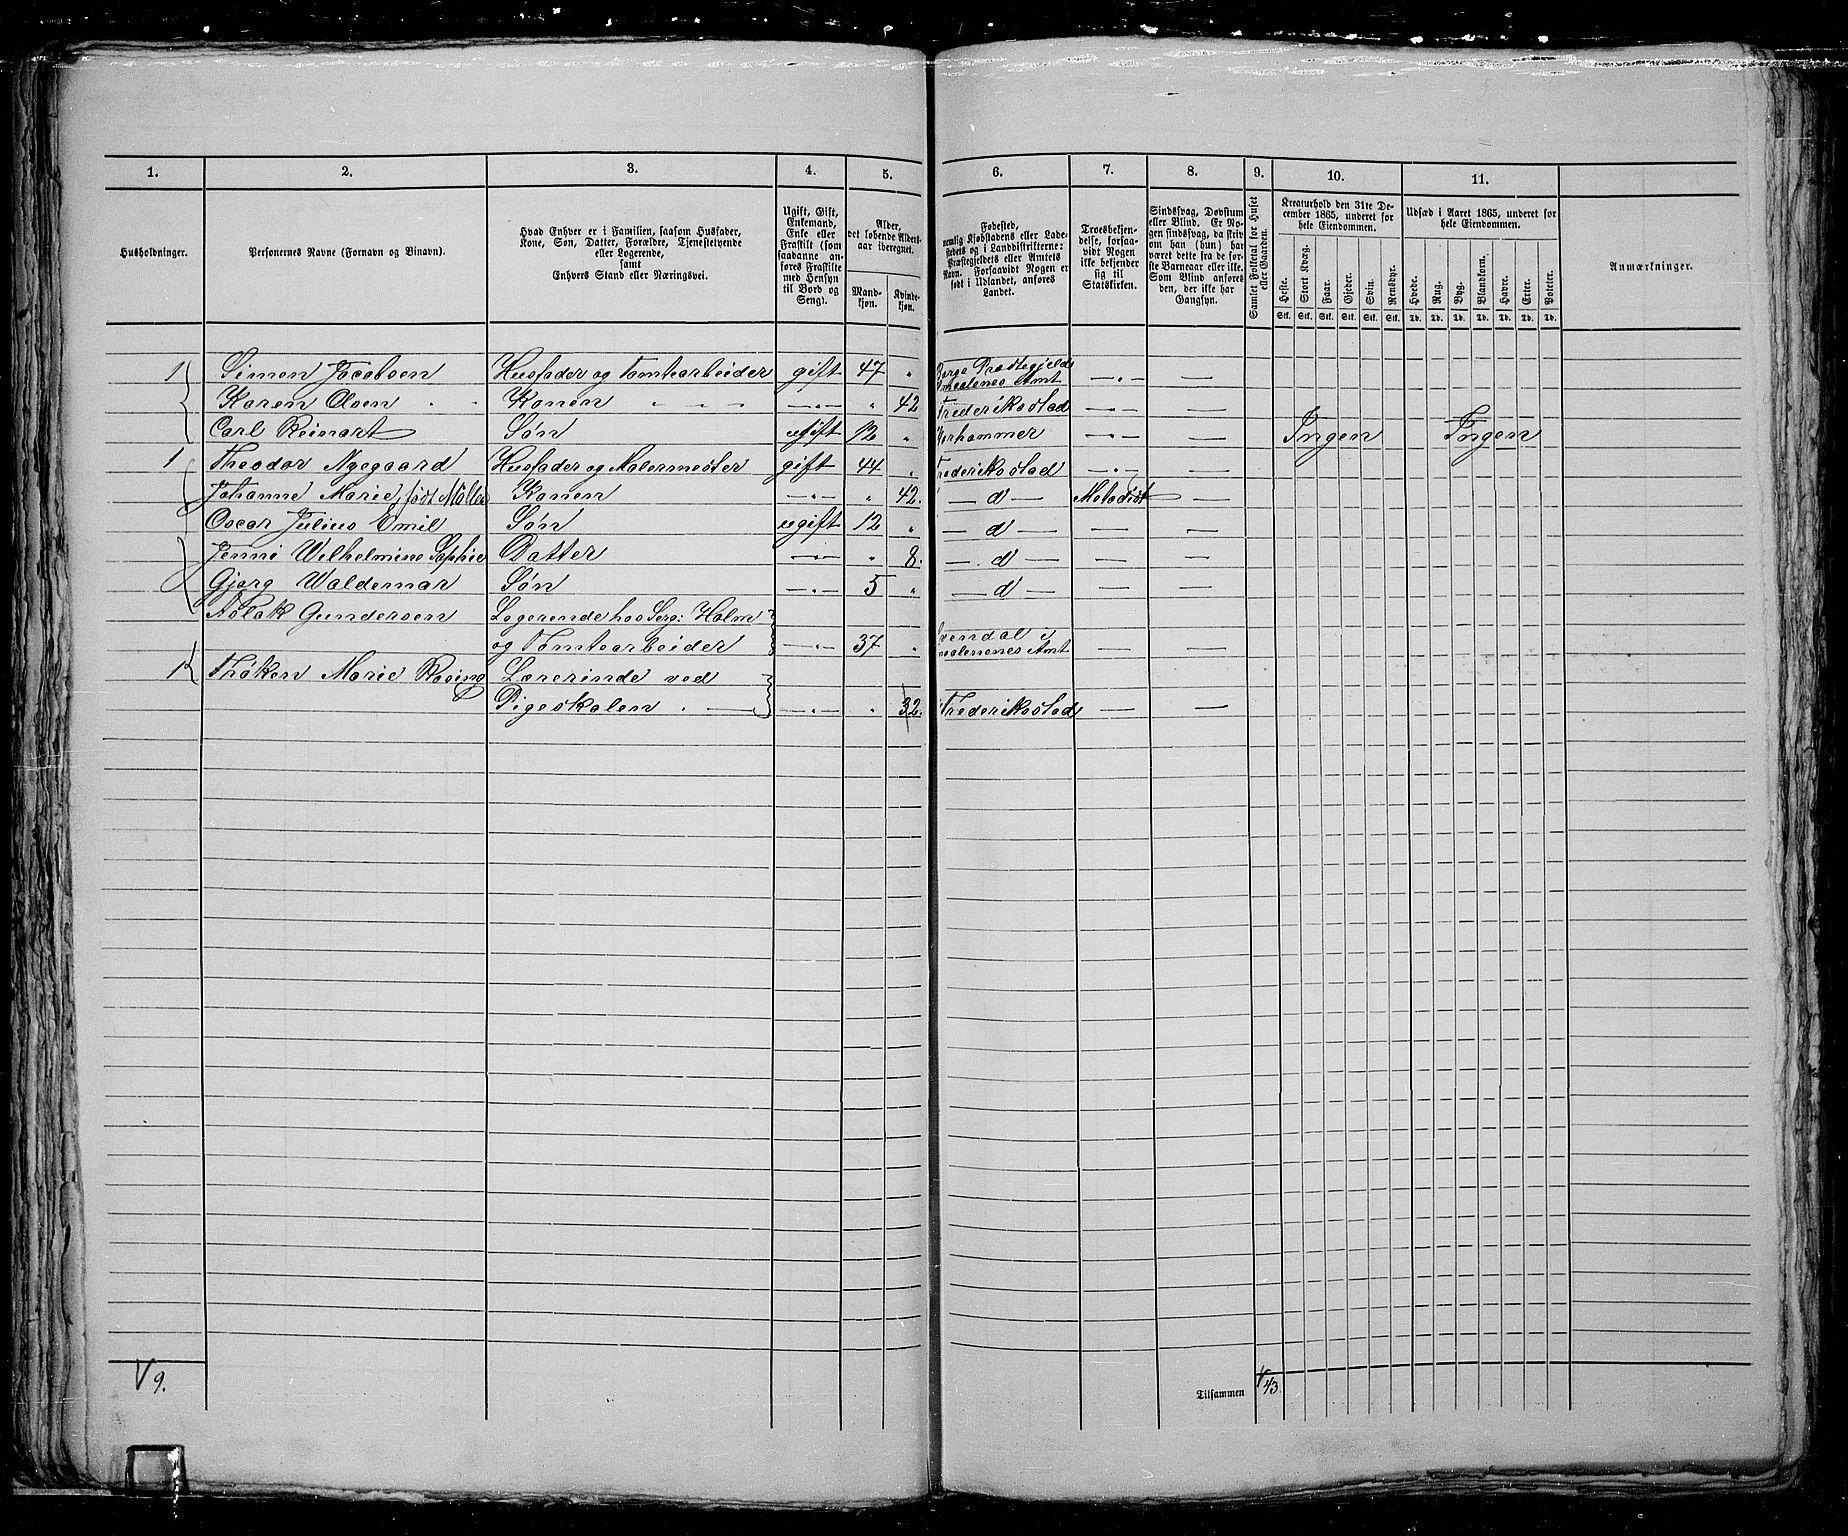 1. 2. 3. 4. 5. 6. 7. 8. 9. 10. 11.
Husholdninger.
Personernes Navne (Fornavn og Binavn).
Hvad Enhver er i Familien, saasom Husfader,
Kone, Søn, Datter, Forældre, Tjenestetyende
eller Logerende,
samt
Enhvers Stand eller Næringsvei.
Ugift, Gift,
Enkemand,
Enke eller
Fraskilt (som
saadanne an-
føres Fraskilte
med Hensyn
til Bord og
Seng).
Alder,
det løbende Alders-
aar iberegnet.
Mand-
kjøn.
Kvinde-
kjøn.
Fødested,
nemlig Kjøbstadens eller Lade-
stedets og i Landdistrikterne:
Præstegjeldets eller Amtets
Navn. Forsaavidt Nogen er
født i Udlandet, anføres
Landet.
Troesbekjen-
delse, forsaa-
vidt Nogen
ikke bekjender
sig til
Statskirken.
Sindssvag, Døvstum
eller Blind. Er No-
gen sindssvag, da skriv
om han (hun) har
været dette fra de før-
ste Barneaar eller ikke.
Som Blind anføres
den, der ikke har
Gangsyn.
Samlet Folketal for Huset
eller Gaarden.
Kreaturhold den 31te De-
cember 1865, underet for
hele Eiendommen.
Heste. Stort Kvæg. Faar. Gjeder. Svin. Rensdyr.
Stk. Stk. Stk. Stk. Stk. Stk.
Udsæd i Aaret 1865, underet for
hele Eiendommen.
Hvede. Rug. Byg. Blandkorn. Havre. Erter. Poteter.
Td. Td. Td. Td. Td. Td. Td.
Anmærkninger.
1 Simon Jacobsen Husfader og Tomtearbeider gift 47 " Borge Præstegjeld
Smaalenenes Amt
Karen Olsen Konen " 42 Frederikstad
Carl Reinart Søn ugift 12 " Ingen Ingen
1 Theodor Nygaard Husfader og Malermester gift 44 " Frederikstad
Johanne Marie, født Møller Konen " 42. — d — Metodist
Oscar Julius Emil Søn ugift 12 " — d —
Jenni Wilhelmine Sophie Datter " 8. — d —
Gjørg Waldemar Søn 5 " — d —
Aslak Gundersen Logerende hos Serg: Holm
og Tomtearbeider 37 " i
Smaalenenes Amt
1 Marie Lærerinde ved
Pigeskolen " 32. Frederikstad
9.
Tilsammen 43.